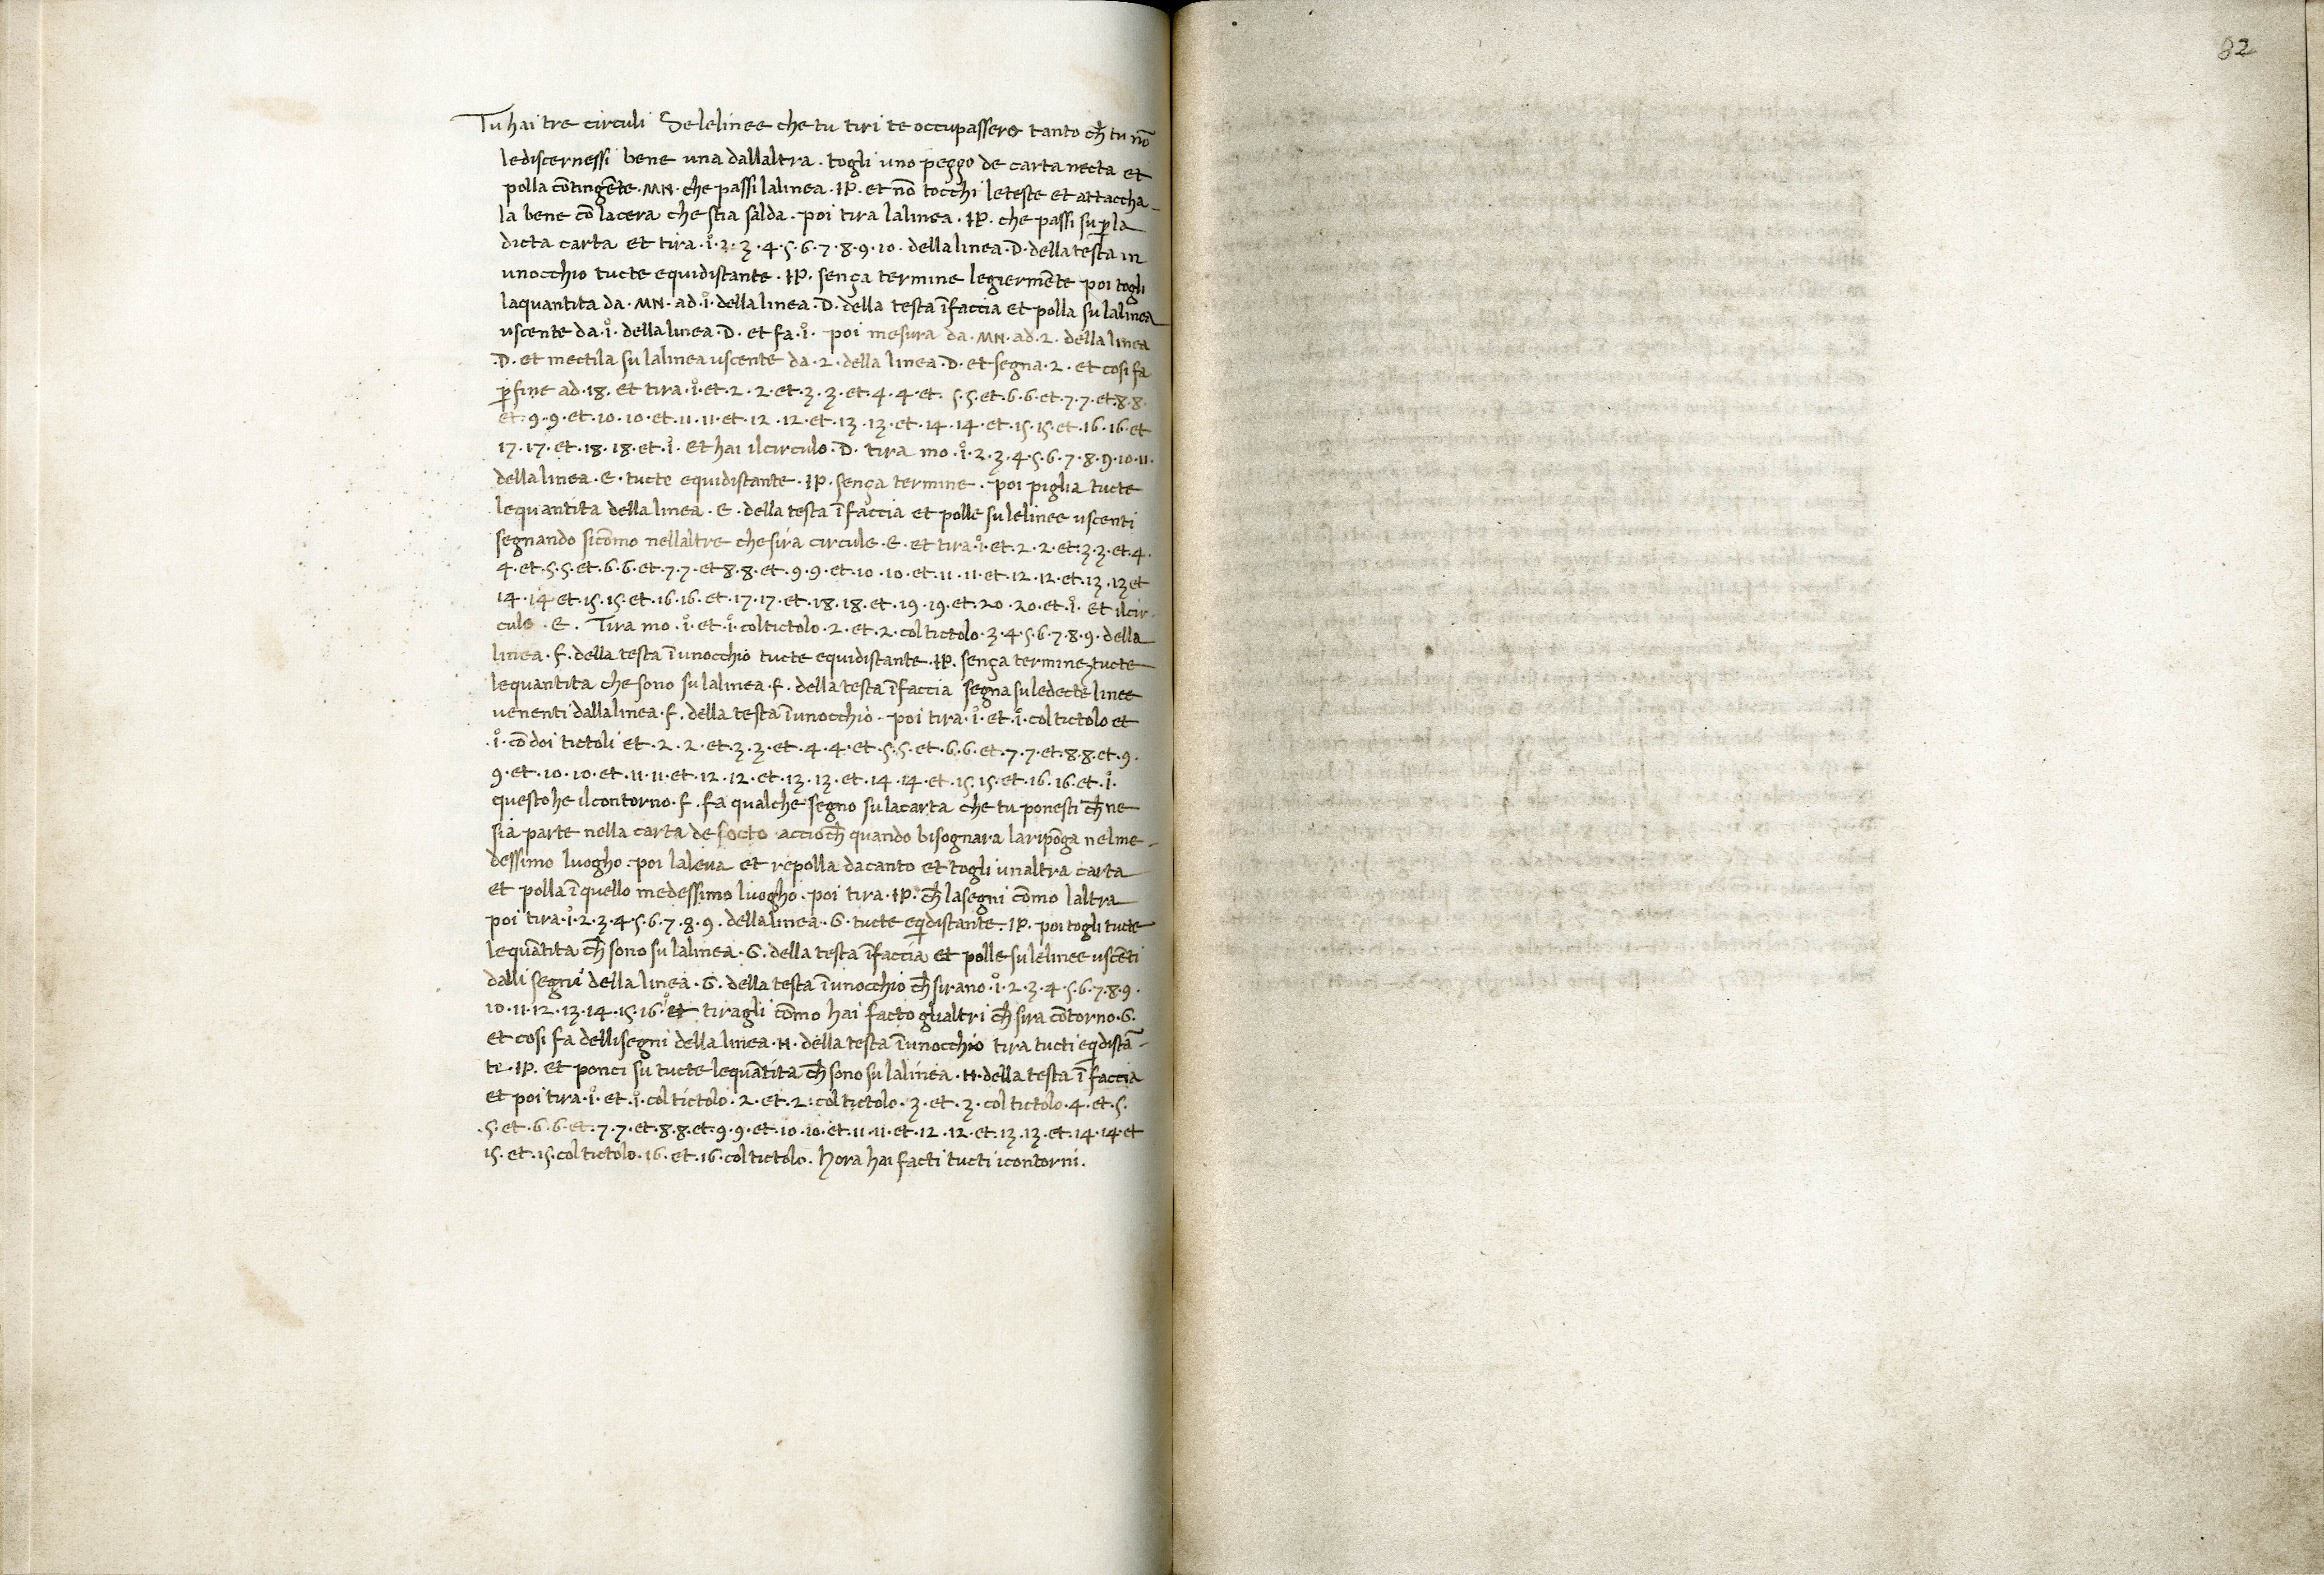 82
Tu hai tre circuli Se le linee che tu tiri te occupassero tanto ch̄ tu nō
le discernessi bene una dallaltra · togli uno peççо de carta necta et
polla cōtingēte · MN · che passi la linea · IP · et nō tocchi le teste et attaccha-
la bene cō la cera che stia salda · poi tira la linea · IP · che passi su p̄ la
dicta carta et tira · i° · 2 · 3 · 4 · 5 · 6 · 7 · 8 · 9 · 10 · della linea · D · della testa in
unocchio tucte equidistante · IP · sença termine legiermēte poi togli
la quantita da · MN · ad · i° · della linea · D · della testa ī faccia et polla su la linea
uscente da · i° · della linea · D · et fa · i° · poi mesura da · MN · ad · 2 · della linea
· D · et mectila su la linea uscente da · 2 · della linea · D · et segna · 2 · et cosi fa
p̄fine ad · 18 · et tira · i° · et · 2 · 2 · et · 3 · 3 · et · 4 · 4 · et · 5 · 5 · et · 6 · 6 · et · 7 · 7 · et · 8 · 8 ·
et · 9 · 9 · et · 10 · 10 · et · 11 · 11 · et · 12 · 12 · et · 13 · 13 · et · 14 · 14 · et · 15 · 15 · et · 16 · 16 · et
17 · 17 · et · 18 · 18 · et · i° · et hai il circulo · D · tira mo · i° · 2 · 3 · 4 · 5 · 6 · 7 · 8 · 9 · 10 · 11 ·
della linea · E · tucte equidistante · IP · sença termine · poi piglia tucte
le quantita della linea · E · della testa ī faccia et polle su le linee uscenti
segnando sicōmo nellaltre che sira circulo · E · et tira · i° · et · 2 · 2 · et · 3 · 3 · et · 4 ·
4 · et · 5 · 5 · et · 6 · 6 · et · 7 · 7 · et · 8 · 8 · et · 9 · 9 · et · 10 · 10 · et · 11 · 11 · et · 12 · 12 · et · 13 · 13 et
14 · 14 et · 15 · 15 · et · 16 · 16 · et · 17 · 17 · et · 18 · 18 · et · 19 · 19 · et · 20 · 20 · et · i° · et il cir-
culo · E · Tira mo · i° · et · i° · col tictolo · 2 · et · 2 · col tictolo · 3 · 4 · 5 · 6 · 7 · 8 · 9 · della
linea · F · della testa ī unocchio tucte equidistante · IP · sença termine 7 tucte
le quantita che sono su la linea · F · della testa ī faccia segna su le decte linee
venenti dalla linea · F · della testa ī unocchio · poi tira · i° · et · i° · col tictolo et
· i° · cō doi tictoli et · 2 · 2 · et · 3 · 3 · et · 4 · 4 · et · 5 · 5 · et · 6 · 6 · et · 7 · 7 · et · 8 · 8 · et · 9 ·
9 · et · 10 · 10 · et · 11 · 11 · et · 12 · 12 · et · 13 · 13 · et · 14 · 14 · et · 15 · 15 · et · 16 · 16 · et · i° ·
questo he il contorno · F · fa qualche segno su la carta che tu ponesti ch̄ ne
sia parte nella carta de socto accioch̄ quando bisognara la ripōga nel me-
dessimo luogho · poi la leva et repolla da canto et togli unaltra carta
et polla ī quello medessimo luogho · poi tira · IP · ch̄ la segni cōmo laltra
poi tira · i° · 2 · 3 · 4 · 5 · 6 · 7 · 8 · 9 · della linea · G · tucte eqdistante · IP · poi togli tucte
le quātita ch̄ sono su la linea · G · della testa ī faccia et polle su le linee uscēti
dalli segni della linea · G · della testa ī unocchio ch̄ sirano · i° · 2 · 3 · 4 · 5 · 6 · 7 · 8 · 9 ·
10 · 11 · 12 · 13 · 14 · 15 · 16 · et tiragli cōmo hai facto glialtri ch̄ sira cōtorno · G ·
et cosi fa delli segni della linea · H · della testa ī unocchio tira tucti eqdistā-
te · IP · et ponci su tucte le quātita ch̄ sono su la linea · H · della testa ī faccia
et poi tira · i° · et · i° · col tictolo · 2 · et · 2 · col tictolo · 3 · et · 3 · col tictolo · 4 · et · 5 ·
· 5 · et · 6 · 6 · et · 7 · 7 · et · 8 · 8 · et · 9 · 9 · et · 10 · 10 · et · 11 · 11 · et · 12 · 12 · et · 13 · 13 · et · 14 · 14 · et
15 · et · 15 · col tictolo · 16 · et · 16 · col tictolo · hora hai facti tucti i contorni ·